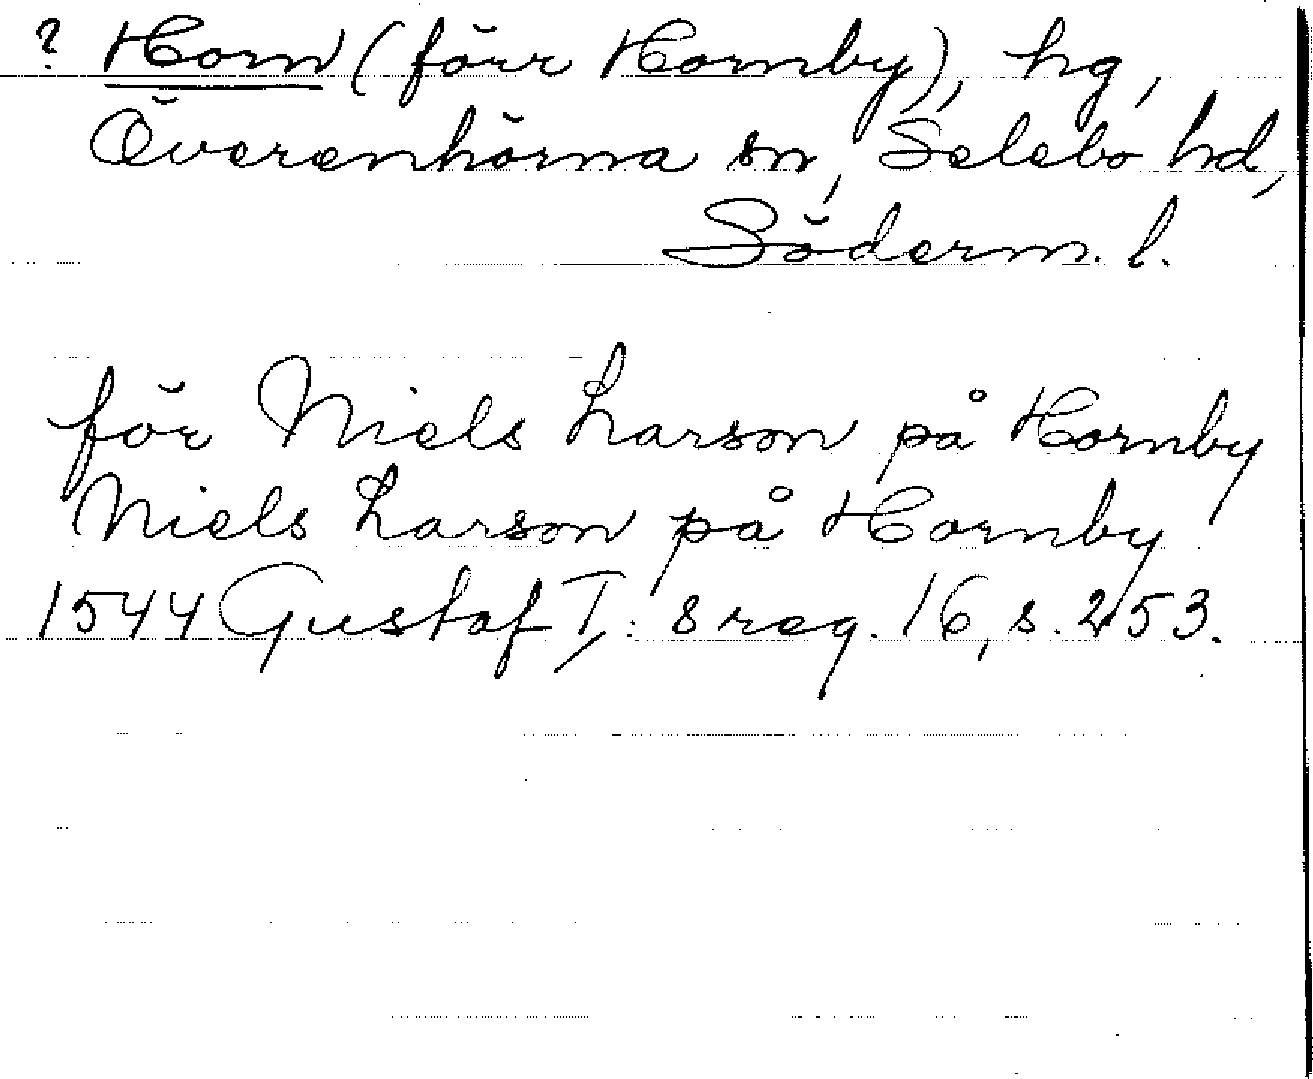 ? Horn (förr Hornby), hg,
Överenhörna sn, Selebo hd,
Söderm. l.
för Niels Larson på Hornby
Niels Larson på Hornby
1544 Gustaf I: s reg. 16, s. 253.